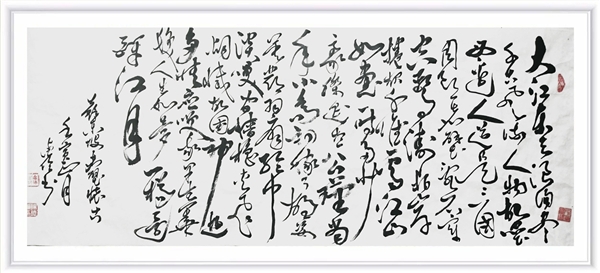 大江东去浪淘尽
千古风流人物故垒
西边人道是三国
周郎赤壁乱石穿
空惊涛拍岸
捲起千堆雪江山
如画一时多少
豪杰遥想公瑾当
年小乔初嫁了雄姿
英发羽扇纶巾
谈笑间樯橹灰飞
烟灭故国神遊
多情应笑我早生华
发人生如梦一尊还
酹江月
赤壁怀古
壬寅月
书